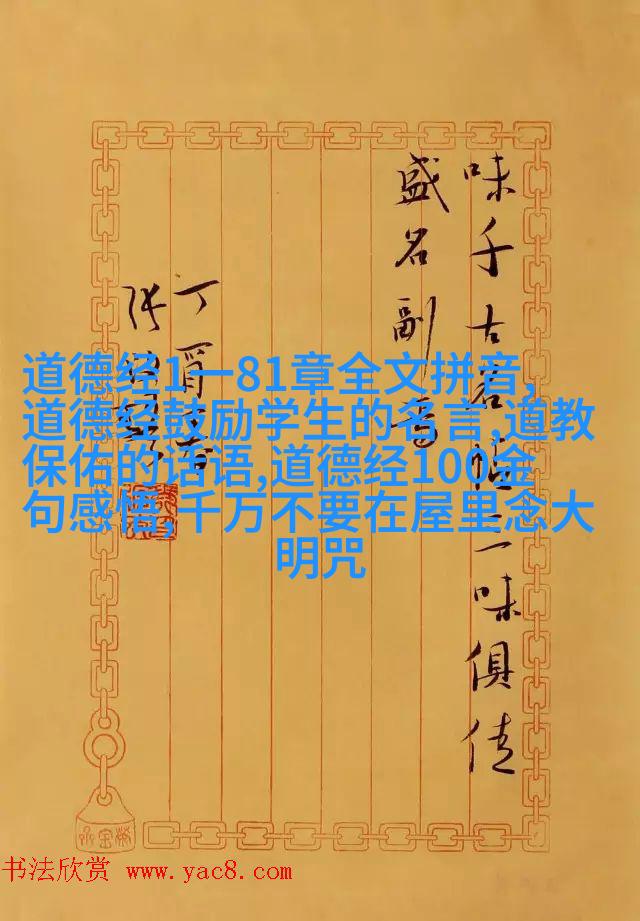 味千古名[…]一味俱佳
盛名副[…]
丁酉[…]
张[…]
道德经1一81章全文拼音,
道德经鼓励学生的名言,道教
保佑的话语,道德经100金
句感悟,千万不要在屋里念大
明咒
书法欣赏 www.yac8.com